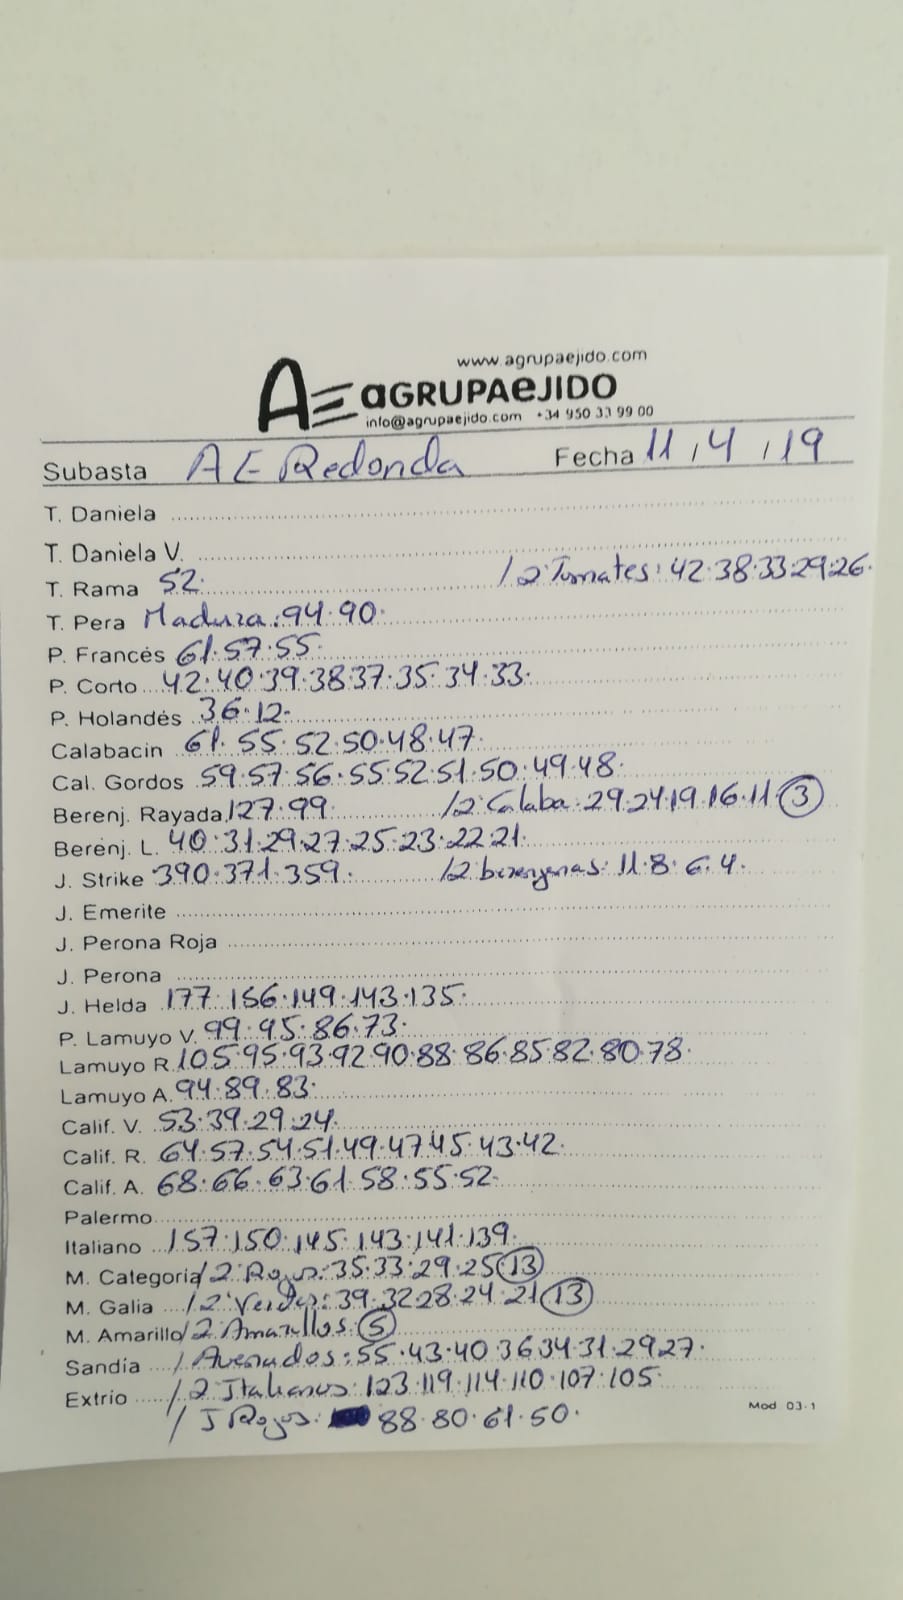 www.agrupaejido.com
AE aGRUPAeJIDO
info@agrupaejido.com +34 950 33 99 00
Subasta AE Redonda Fecha 11/4/19
T. Daniela
T. Daniela V.
T. Rama 52. /2ª Tomates: 42.38.33.29.26.
T. Pera Madura: 94.90.
P. Francés 61.57.55.
P. Corto 42.40.39.38.37.35.34.33.
P. Holandés 36.12.
Calabacin 61.55.52.50.48.47.
Cal. Gordos 59.57.56.55.52.51.50.49.48.
Berenj. Rayada 127.99. /2ª Calaba: 29.24.19.16.11 (3)
Berenj. L. 40.31.29.27.25.23.22.21.
J. Strike 390.371.359. /2 berenjenas: 11.8.6.4.
J. Emerite
J. Perona Roja
J. Perona
J. Helda 177.156.149.143.135.
P. Lamuyo V. 99.95.86.73.
Lamuyo R. 105.95.93.92.90.88.86.85.82.80.78.
Lamuyo A. 94.89.83.
Calif. V. 53.39.29.24.
Calif. R. 64.57.54.51.49.47.45.43.42.
Calif. A. 68.66.63.61.58.55.52.
Palermo
Italiano 157.150.145.143.141.139.
M. Categoria /2ª Rojos: 35.33.29.25 (13)
M. Galia /2ª Verdes: 39.32.28.24.21 (13)
M. Amarillo /2 Amarillos: (5)
Sandía / Asurados: 55.43.40.36.34.31.29.27.
Extrio /2 Italianos: 123.119.114.110.107.105.
/ J Rojos: 88.80.61.50.
Mod. 03-1